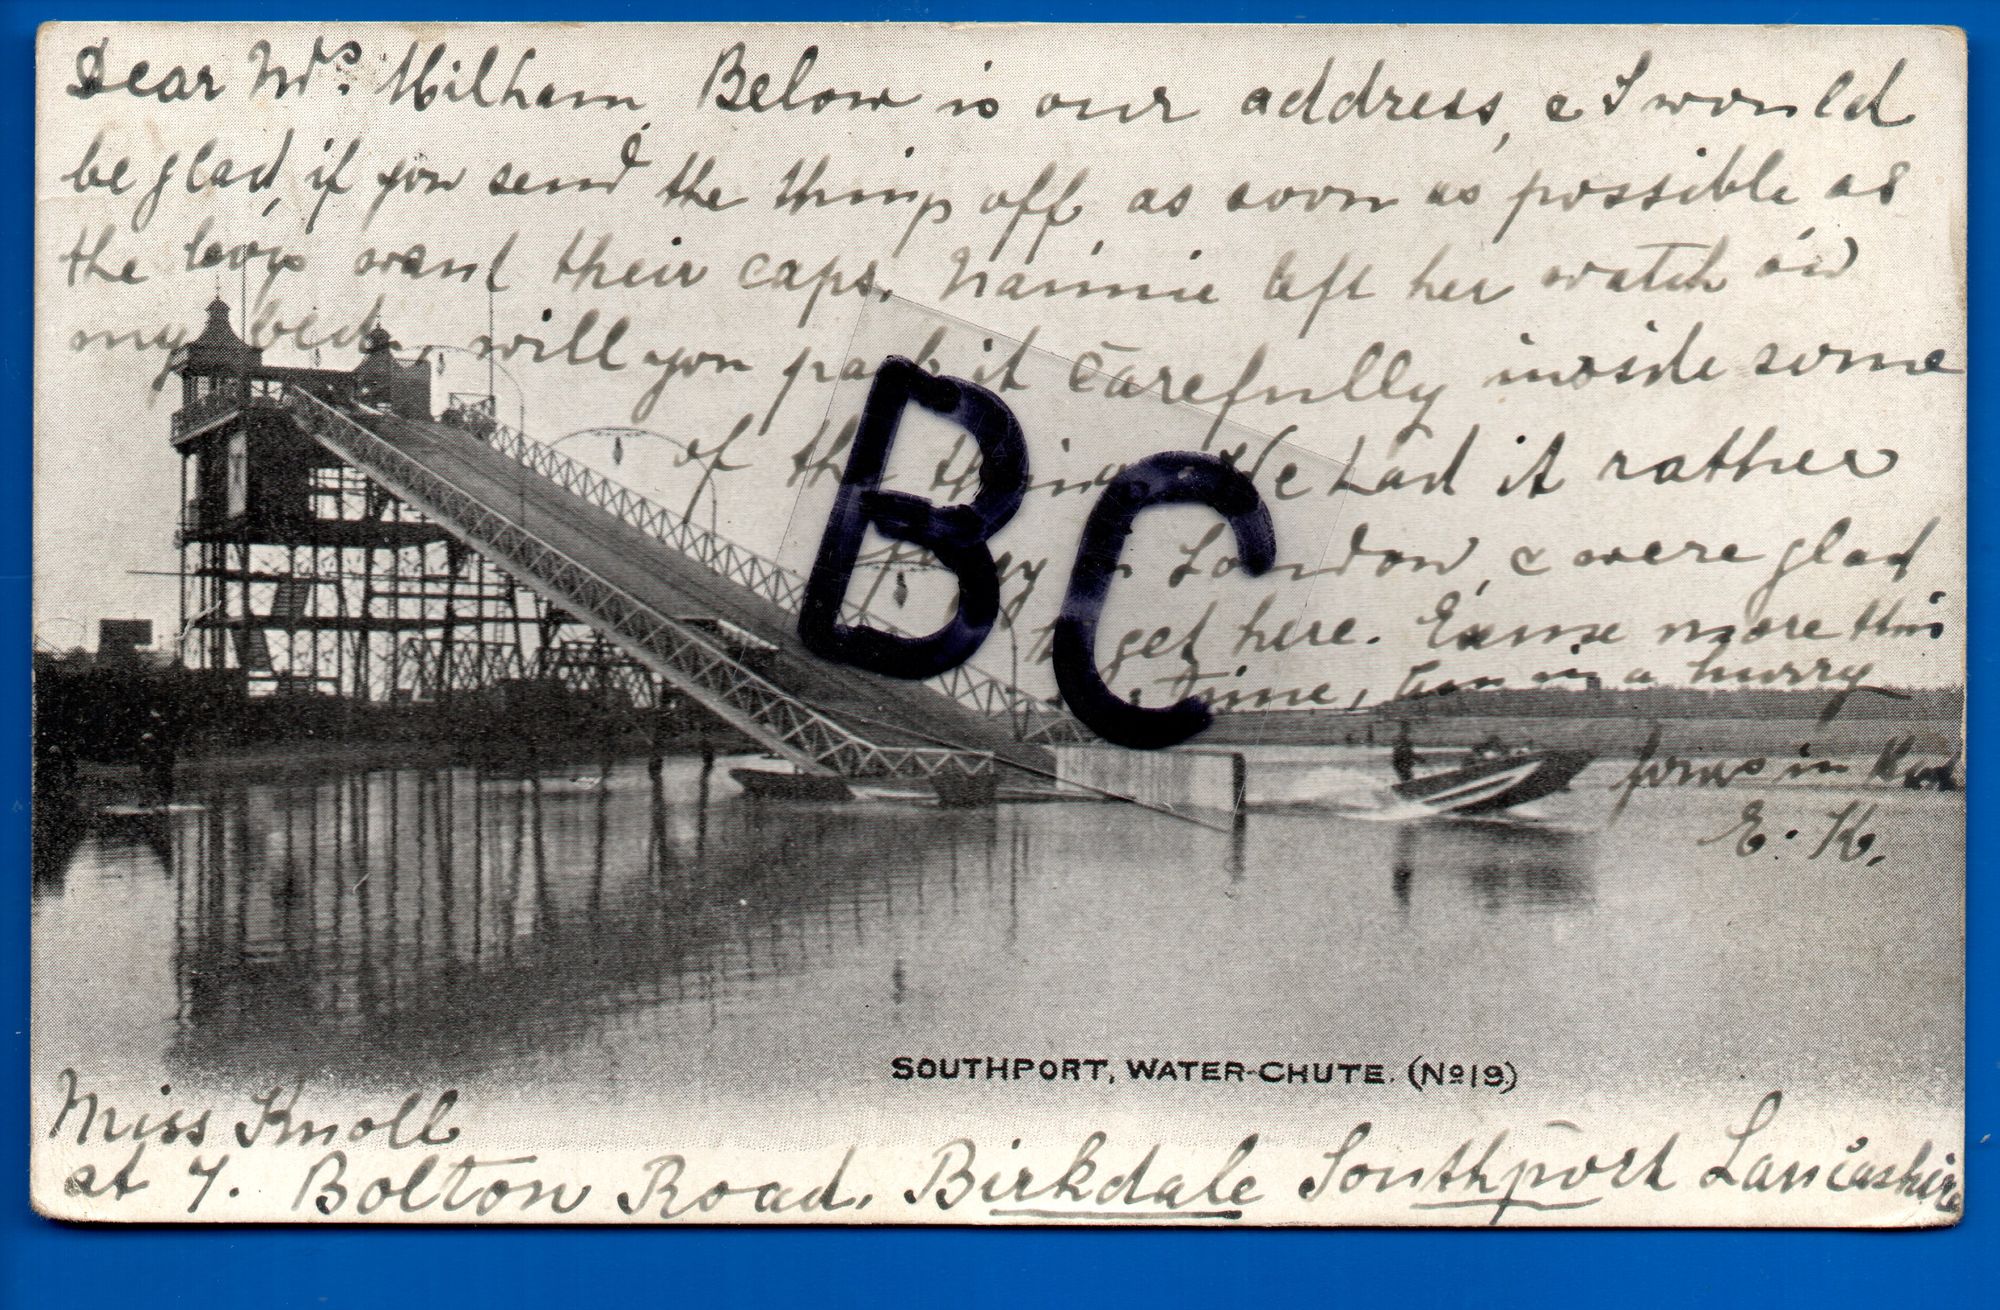 Dear Mrs. Milham, Below is our address, & I would
be glad, if you send the things off, as soon as possible as
the boys want their caps. Nannie left her watch on
my bed, will you pack it carefully inside some
of the things. We had it rather
foggy in London, & were glad
to get here. Excuse more this
time, am in a hurry
yours in
E. K.
BC
SOUTHPORT, WATER-CHUTE. (No 19.)
Miss Knoll
at 7. Bolton Road. Birkdale Southport Lancashire